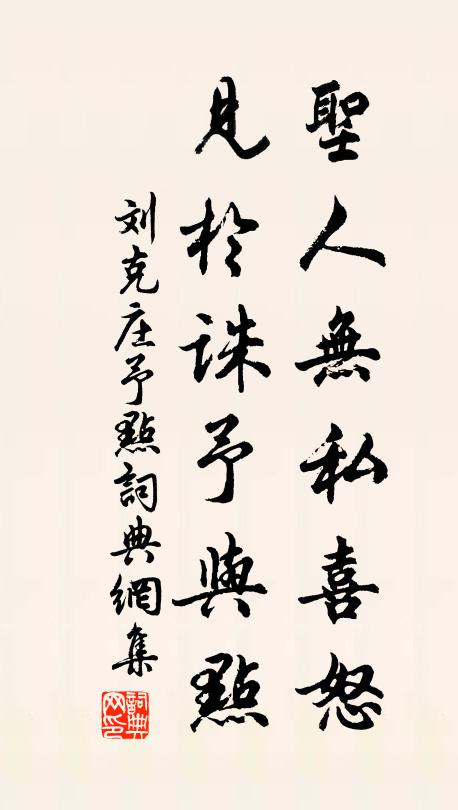 聖人無私喜怒
見於誅予與點
刘克庄予點詞典網集
詞典网印